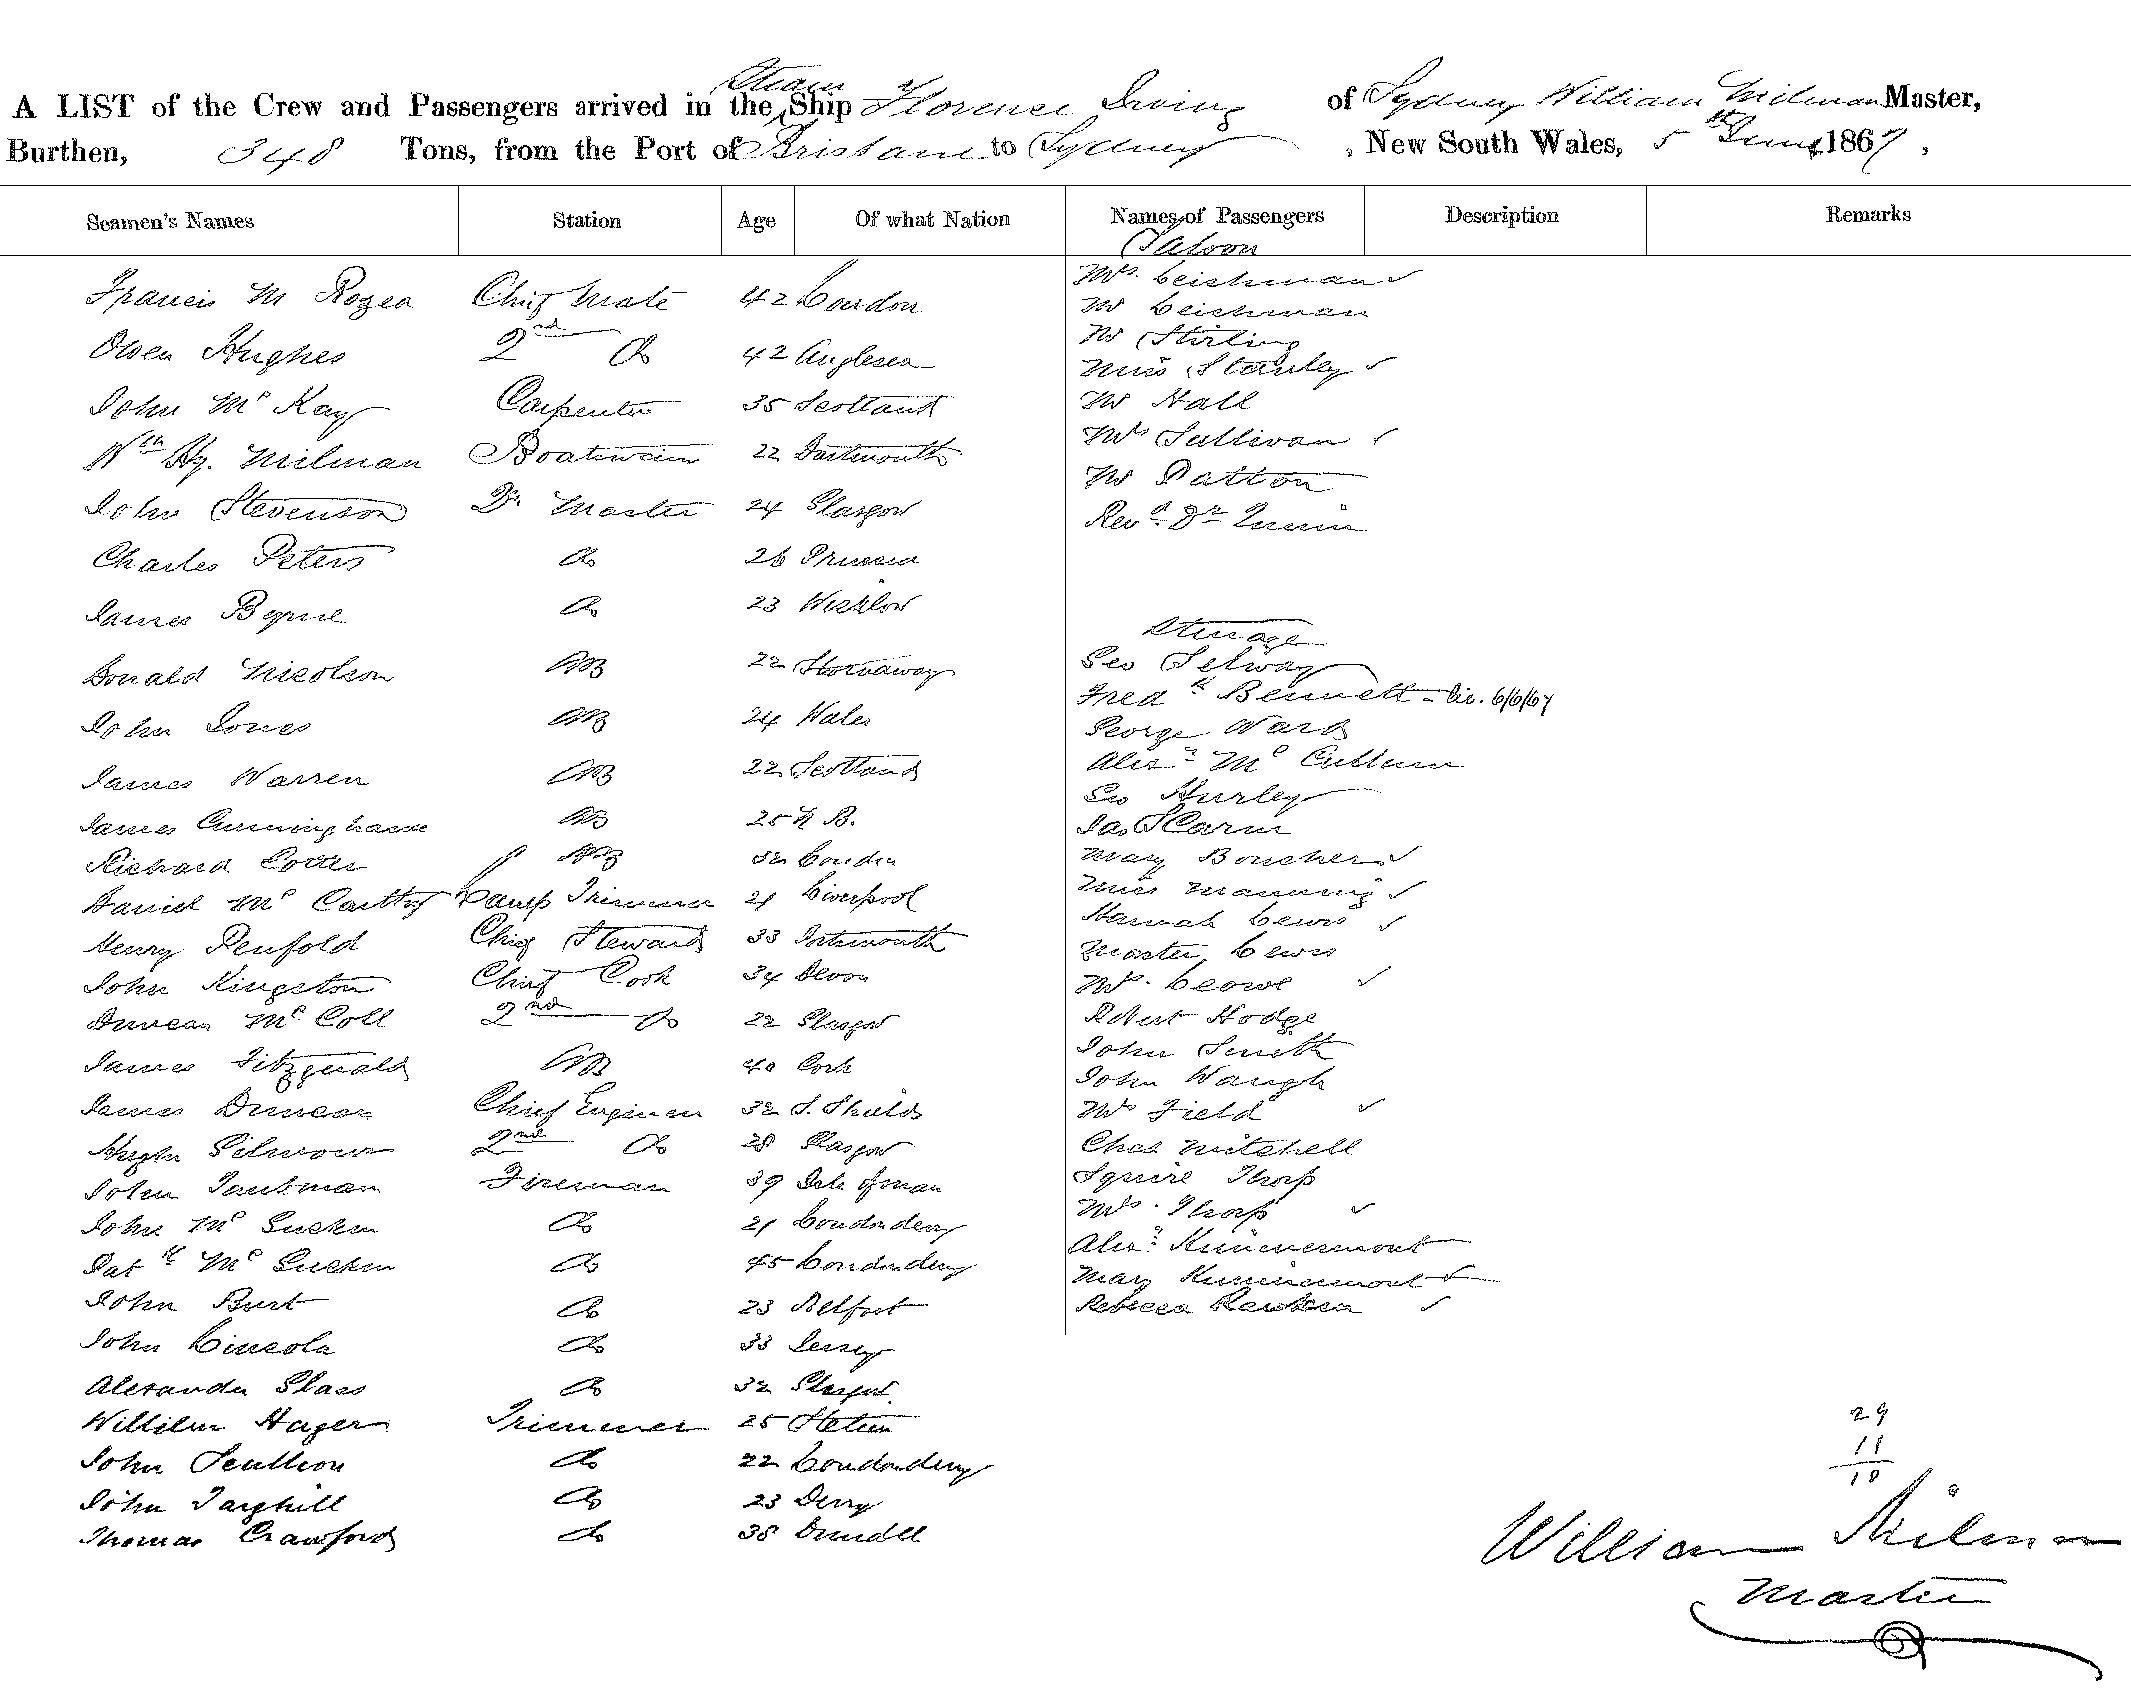 Steam
A LIST of the Crew and Passengers arrived in the Ship Florence Irving of Sydney William Milman Master,
Burthen, 348 Tons, from the Port of Brisbane to Sydney, New South Wales, 5th June 1867,
Seamen's Names Station Age Of what Nation Names of Passengers Description Remarks
Saloon
Francis M Rozea Chief Mate 42 London
Owen Hughes 2nd Do 42 Anglesea
John Mc Kay Carpenter 35 Scotland
Wm Hy. Milman Boatswain 22 Dartmouth
John Stevenson Master 24 Glasgow
Charles Peters Do 26 Prussia
James Byrne Do 23 Wicklow
Donald Nicolson AB 22 Stornaway
John Jones AB 24 Wales
James Warren AB 22 Scotland
James Cunninghame AB 25 N B.
Richard AB 32 London
Daniel Mc Carthy Lamp Trimmer 21 Liverpool
Henry Penfold Chief Steward 33 Portsmouth
John Kingston Chief Cook 34 Devon
Duncan Mc Coll 2nd Do 22 Glasgow
James Fitzgerald AB 40 Cork
James Duncan Chief Engineer 32 S. Shields
Hugh Gilmour 2nd Do 28 Glasgow
John Fireman 39 Isle of man
John Mc Guckin Do 21 Londonderry
Patk Mc Guckin Do 45 Londonderry
John Burt Do 23 Belfast
John Lincoln Do 33 Jersey
Alexander Glass Do 32 Glasgow
Hager Trimmer 25 Stetin
John Scullion Do 22 Londonderry
John Do 23 Derry
Thomas Crawford Do 38 Dundee
Mrs. Leishman ✓
Mr Leishman
Mr Stirling
Miss Stanley ✓
Mr Hall
Mrs Sullivan ✓
Mr Patton
Revd Dr Quinn
Steerage
Geo Selway
Fredk Bennett - 6/6/67
George Ward
Alexr Mc Cullum
Geo Hurley
Jas
Mary Boucher ✓
Miss Manning ✓
Hannah Lewis ✓
Master Lewis
Mrs. Lowe ✓
Robert Hodge
John Smith
John Waugh
Mrs Field ✓
Chas Mitchell
Squire Thorp
Mrs. Thorp ✓
Alexr Kinnermont
Mary Kinnermont ✓
Rebecca ✓
29
11
18
William Milman
Master